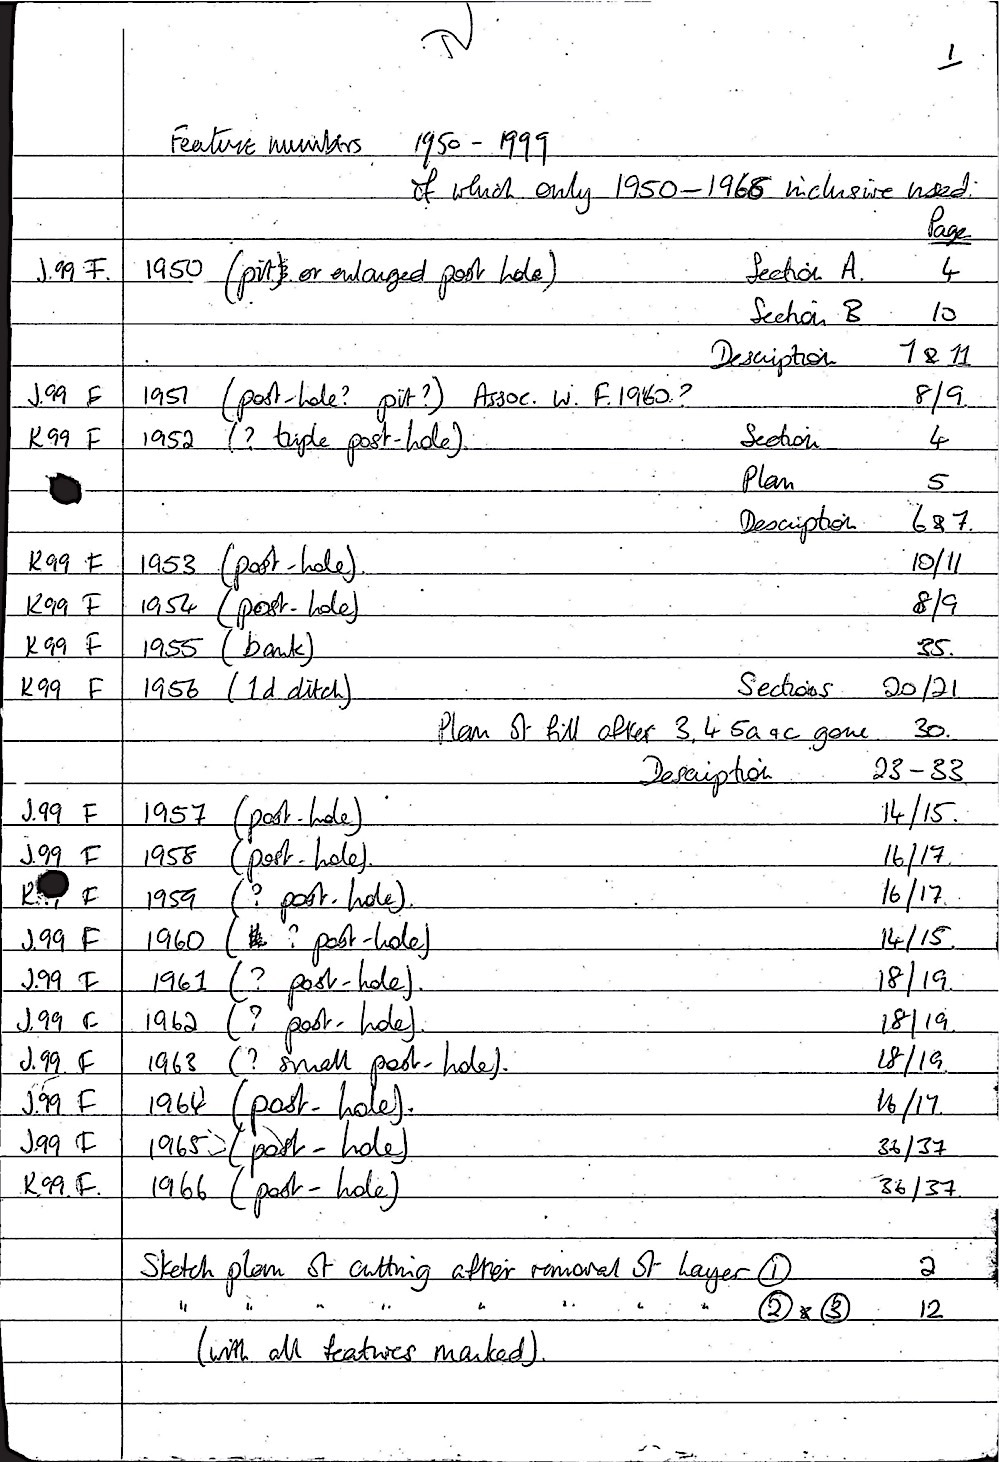 1
Feature numbers 1950 - 1999
of which only 1950 - 1966 inclusive used.
Page
J.99 F. 1950 (pit or enlarged post hole) Section A. 4
Section B 10
Description 7 & 11
J.99 F 1951 (post-hole? pit?) Assoc. W. F.1960? 8/9
K99 F 1952 (? triple post-hole). Section 4
Plan 5
Description 6 & 7.
K99 F 1953 (post-hole). 10/11
K99 F 1954 (post-hole) 8/9
K99 F 1955 (bank) 35.
K99 F 1956 (1d ditch) Sections 20/21
Plan of fill after 3, 4 5a & c gone 30.
Description 23-33
J.99 F 1957 (post-hole) 14/15.
J.99 F 1958 (post-hole). 16/17.
K F 1959 (? post-hole). 16/17.
J.99 F 1960 (? post-hole) 14/15.
J.99 F 1961 (? post-hole). 18/19.
J.99 F 1962 (? post-hole). 18/19.
J.99 F 1963 (? small post-hole). 18/19
J.99 F 1964 (post-hole). 16/17.
J.99 F 1965 (post-hole) 36/37
K99.F. 1966 (post-hole) 36/37.
Sketch plan of cutting after removal of Layer ① 2
" " " " " " " " ② & ③ 12
(with all features marked).